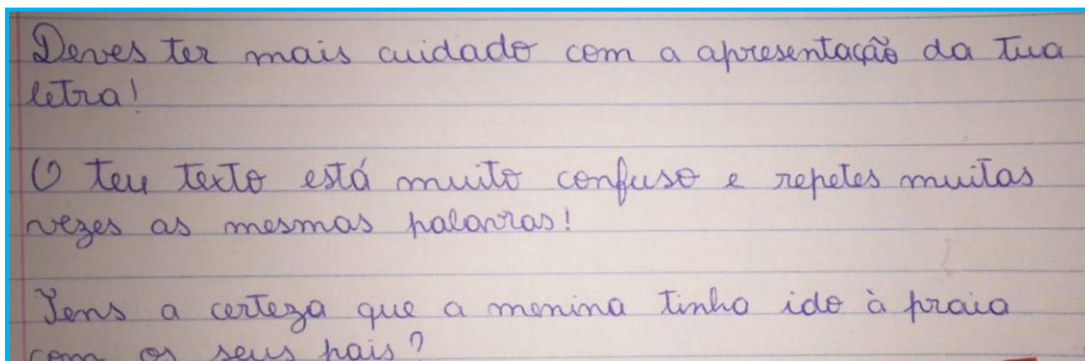 Deves ter mais cuidado com a apresentação da tua
letra!
O teu texto está muito confuso e repetes muitas
vezes as mesmas palavras!
Tens a certeza que a menina tinha ido à praia
com os seus pais?